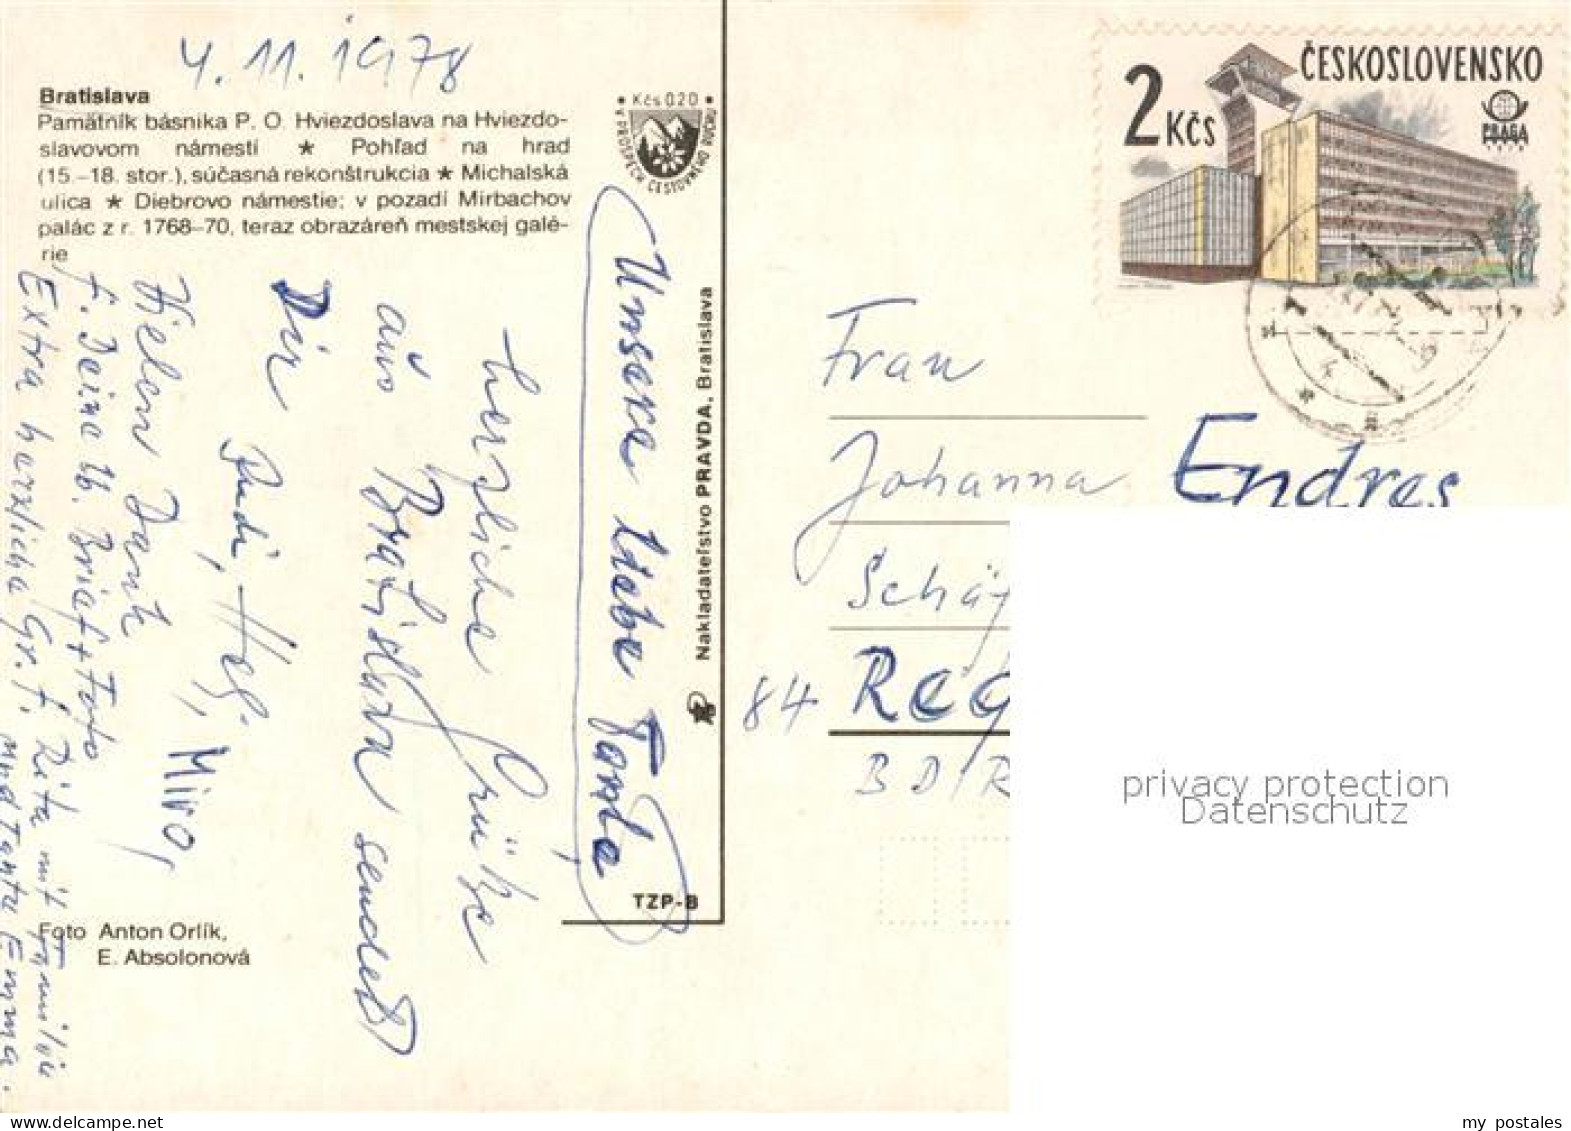 4. 11. 1978
Bratislava
Pamätník básnika P. O. Hviezdoslava na Hviezdo-
slavovom námestí ★ Pohľad na hrad
(15.–18. stor.), súčasná rekonštrukcia ★ Michalská
ulica ★ Diebrovo námestie; v pozadí Mirbachov
palác z r. 1768–70, teraz obrazáreň mestskej galé-
rie
• Kčs 0,20 •
V PROSPECH CESTOVNÉHO RUCHU
Unsere liebe Tante
herzliche Grüße
aus Bratislava sendet
Dir Rudi, Hel., Miro,
Vielen Dank
f. Deine lb. Brief + Foto
Extra herzliche Gr. f. Rita mit Familie
und Tante Emma.
Foto Anton Orlík,
E. Absolonová
Nakladateľstvo PRAVDA, Bratislava
TZP-B
ČESKOSLOVENSKO
2 Kčs
PRAGA
Frau
Johanna Endres
Schäf
84 Reg
BDR
privacy protection
Datenschutz
my_postales